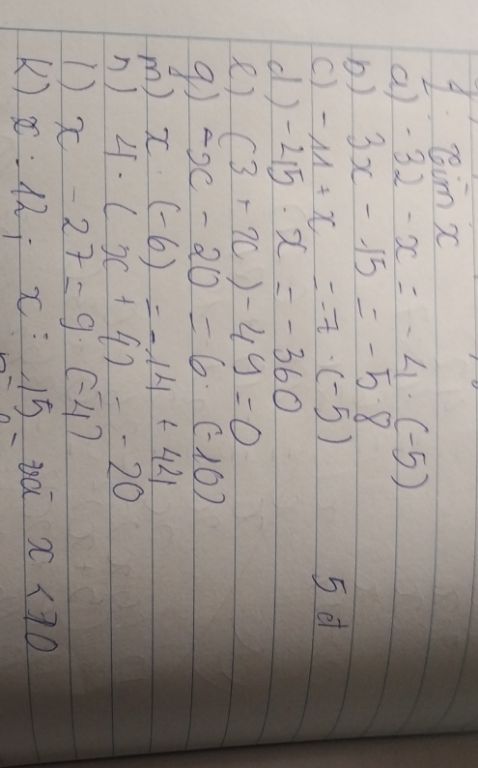 tìm x
a) -32 - x = -4 . (-5)
b) 3x - 15 = -5.8
c) -11 + x = -7 . (-5)
d) -45 . x = -360 5 d
e) (3 + x) - 49 = 0
g) -x - 20 = 6 . (-10)
m) x . (-6) = -14 + 44
n) 4 . (x + 4) = -20
i) x - 27 = 9 . (-4)
k) x ⋮ 12; x ⋮ 15 và x < 70